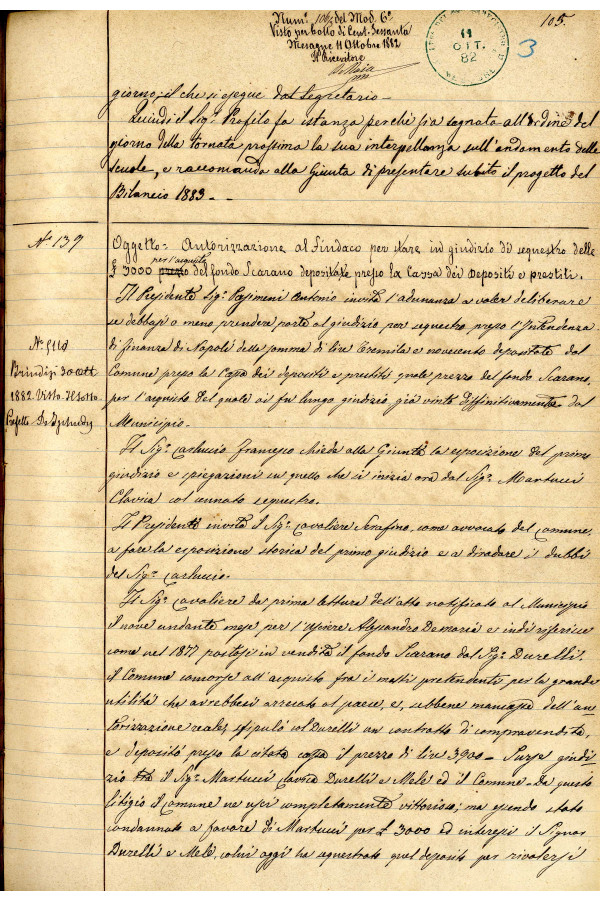 Num.° 106 del Mod. 6°
Visto per bollo di Cent. Sessanta
Mesagne 11 Ottobre 1882
Il Ricevitore
105.
11
OTT.
82
3
giorno; il che si esegue dal Segretario –
Quindi il Sig.r Profilo fa istanza perchè sia segnata all'Ordine del
giorno della tornata prossima la sua interpellanza sull'andamento delle
scuole, e raccomanda alla Giunta di presentare subito il progetto del
Bilancio 1883 – –
N.° 137
Oggetto = Autorizzazione al Sindaco per stare in giudizio di sequestro delle
per l'acquisto
£ 3000 prezzo del fondo Scarano depositate presso la Cassa dei Depositi e prestiti.
Il Presidente Sig.r Pasimeni Antonio invita l'adunanza a voler deliberare
se debbasi o meno prendere parte al giudizio per sequestro presso l'Intendenza
di finanza di Napoli della somma di lire Tremila e novecento depositate dal
Comune presso la Cassa dei depositi e prestiti quale prezzo del fondo Scarano,
per l'acquisto del quale si fu lungo giudizio già vinto diffinitivamente dal
Municipio –
N.° 5110
Brindisi 30 Ott
1882. Visto. Il Sotto
Prefetto
Il Sig.r Carluccio Francesco chiede alla Giunta la esposizione del primo
giudizio e spiegazioni su quello che si inizia ora dal Sig.r Martucci
Clavica col cennato sequestro.
Il Presidente invita il Sig.r Cavaliere Serafino, come avvocato del Comune,
a fare la esposizione storica del primo giudizio e a diradare i dubbi
del Sig.r Carluccio.
Il Sig.r Cavaliere da prima lettura dell'atto notificato al Municipio
il nove andante mese per l'usciere Alessandro Demaria e indi riferisce
come nel 1877 postosi in vendita il fondo Scarano dal Sig.r Durelli,
il Comune concorse all'acquisto fra i molti pretendenti per la grande
utilità che avrebbesi arrecato al paese, e, sebbene mancasse dell'au
torizzazione reale, stipulò col Durelli un contratto di compravendita,
e depositò presso la citata cassa il prezzo di lire 3900 – Surse giudi
zio tra il Sig.r Martucci Clavica Durelli e Melè ed il Comune – Da questo
litigio il Comune ne uscì completamente vittorioso; ma essendo stato
condannato a favore di Martucci per £ 3000 ed interessi il Signor
Durelli e Melè, colui oggi ha sequestrato quel deposito per rivalersi